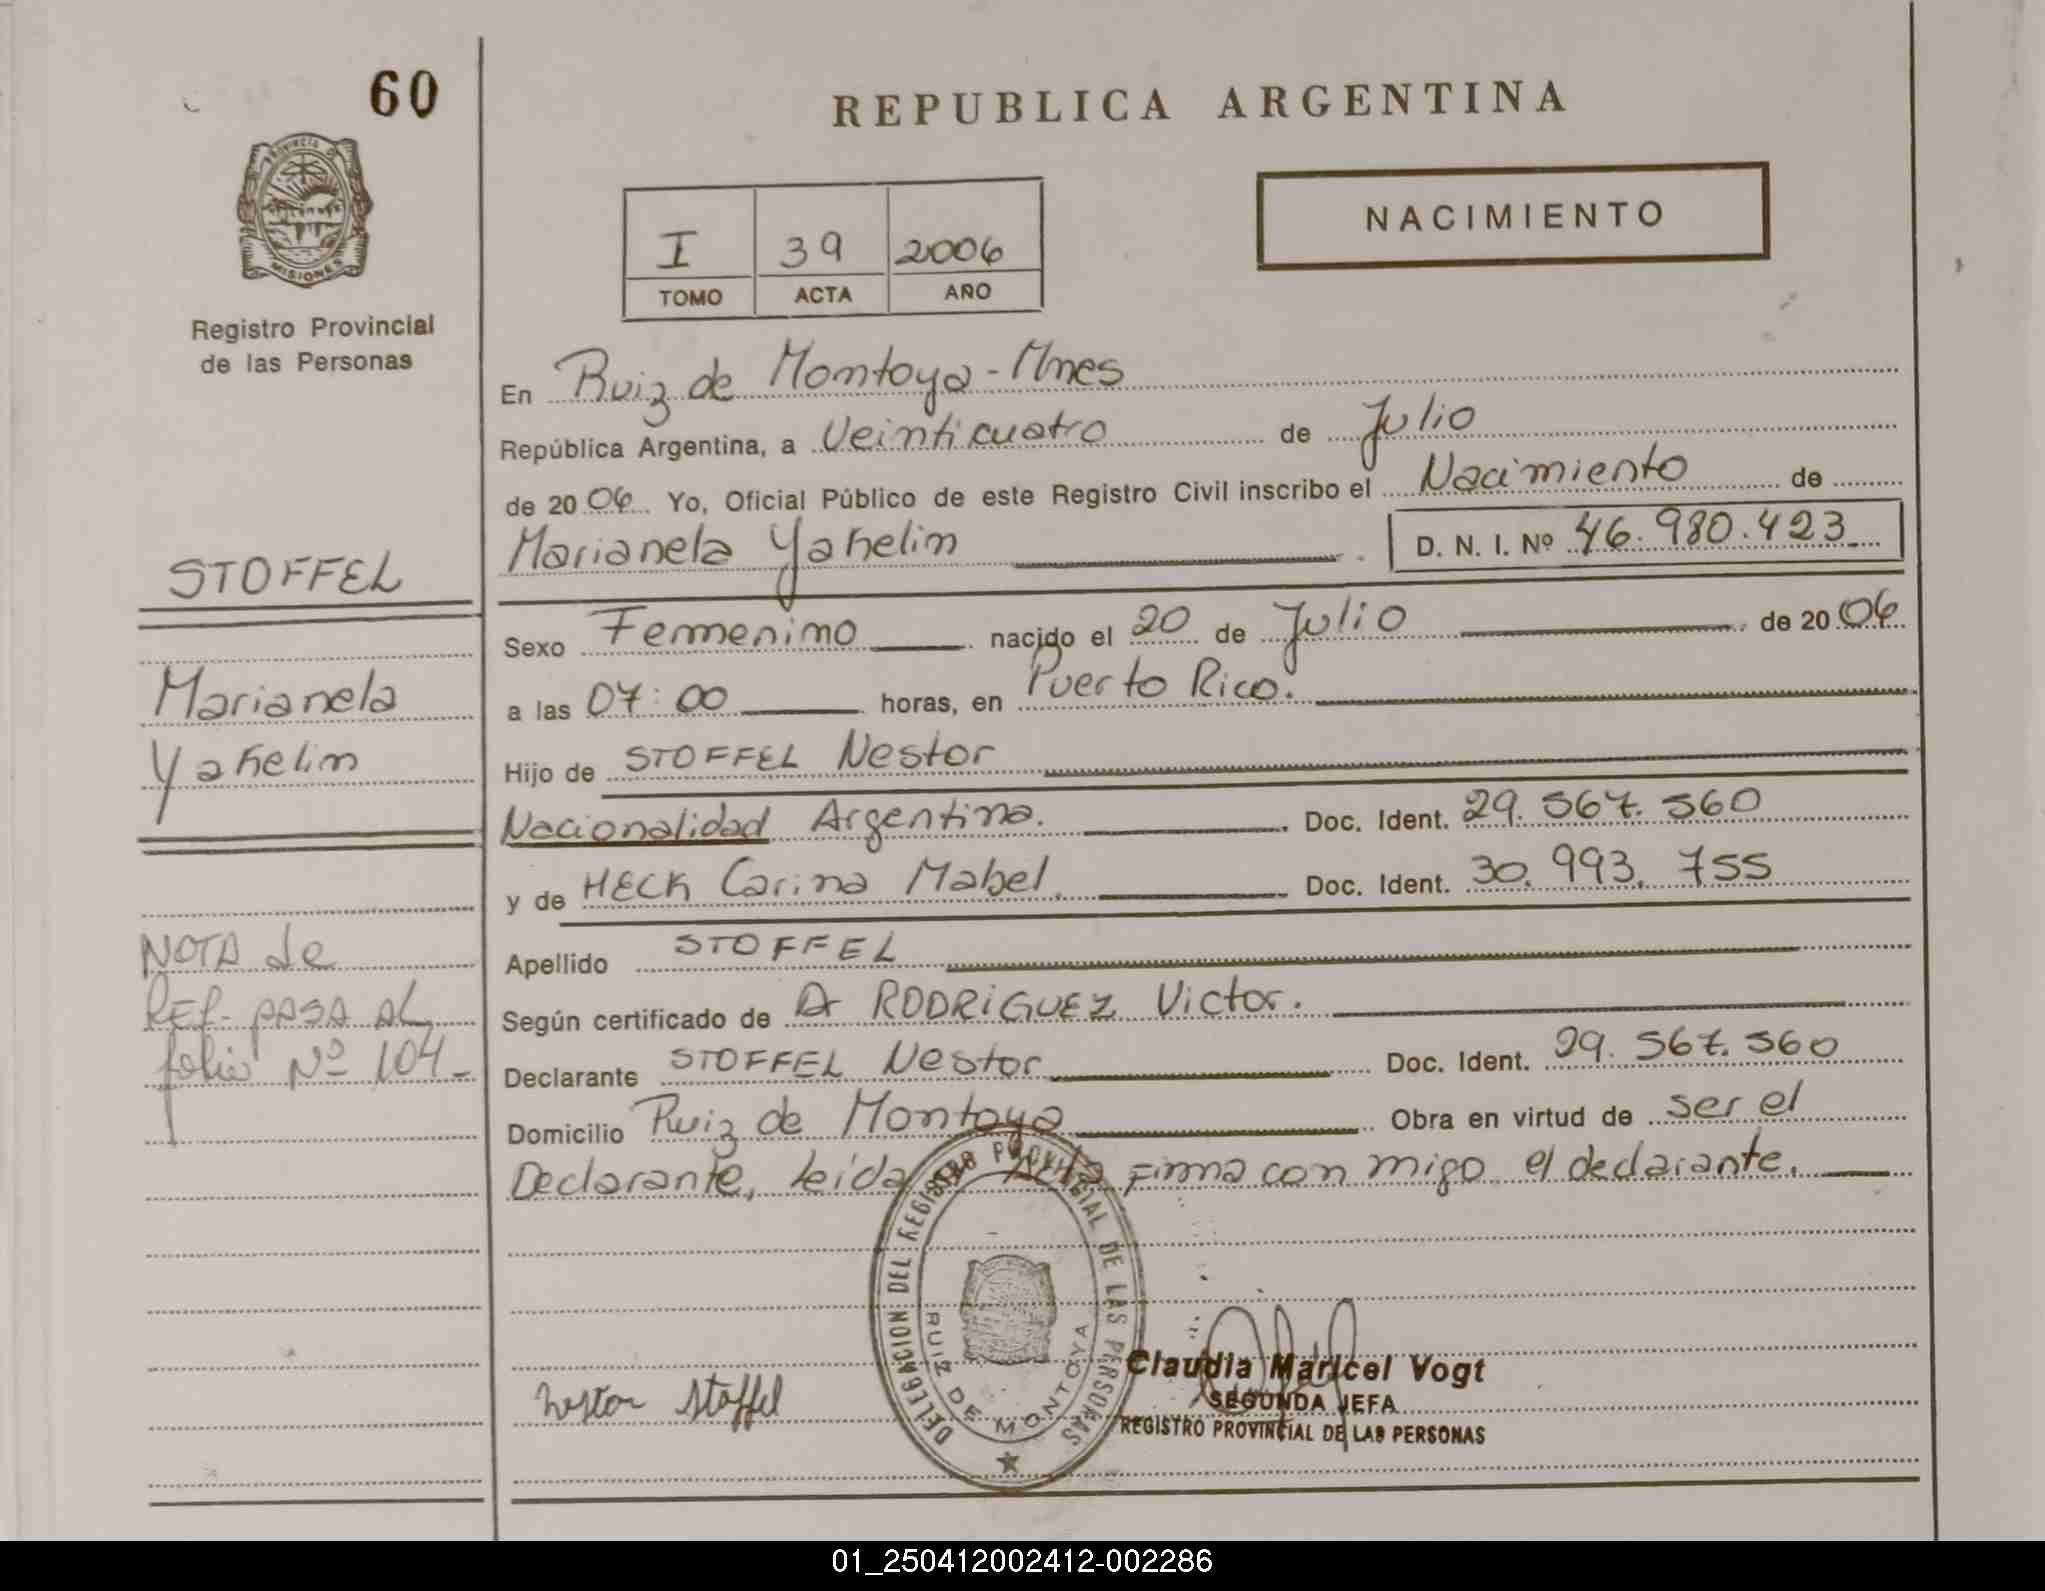 60
REPUBLICA ARGENTINA
PROVINCIA DE
MISIONES
Registro Provincial
de las Personas
I 39 2006
TOMO ACTA AÑO
NACIMIENTO
En Ruiz de Montoya - Mnes
República Argentina, a Veinticuatro de Julio
de 2006 Yo, Oficial Público de este Registro Civil inscribo el Nacimiento de
Marianela Yakelin D. N. I. Nº 46.980.423
STOFFEL
Marianela
Yakelin
Sexo Femenino nacido el 20 de Julio de 2006
a las 07:00 horas, en Puerto Rico.
Hijo de STOFFEL Nestor
Nacionalidad Argentina. Doc. Ident. 29.567.560
y de HECK Carina Mabel. Doc. Ident. 30.993.755
NOTA de
REF- PASA AL
folio Nº 104-
Apellido STOFFEL
Según certificado de Dr RODRIGUEZ Victor.
Declarante STOFFEL Nestor Doc. Ident. 29.567.560
Domicilio Ruiz de Montoya Obra en virtud de ser el
Declarante, Leida Acta Firma con migo el declarante.
DELEGACION DEL REGISTRO PROVINCIAL DE LAS PERSONAS
RUIZ DE MONTOYA
Nestor Stoffel
Claudia Maricel Vogt
SEGUNDA JEFA
REGISTRO PROVINCIAL DE LAS PERSONAS
01_250412002412-002286